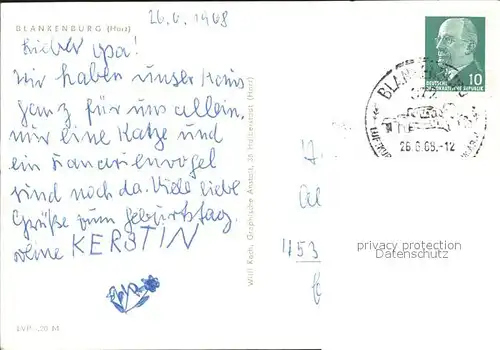 26.6.1968
BLANKENBURG (Harz)
Lieber Opa!
Wir haben unser Haus
ganz für uns allein,
nur eine Katze und
ein Kanarienvogel
sind noch da. Viele liebe
Grüße zum Geburtstag.
Deine KERSTIN
10
DEUTSCHE
DEMOKRATISCHE REPUBLIK
26.6.68.-12
453
privacy protection
Datenschutz
Willi Rach, Graphische Anstalt, 38 Halberstadt (Harz)